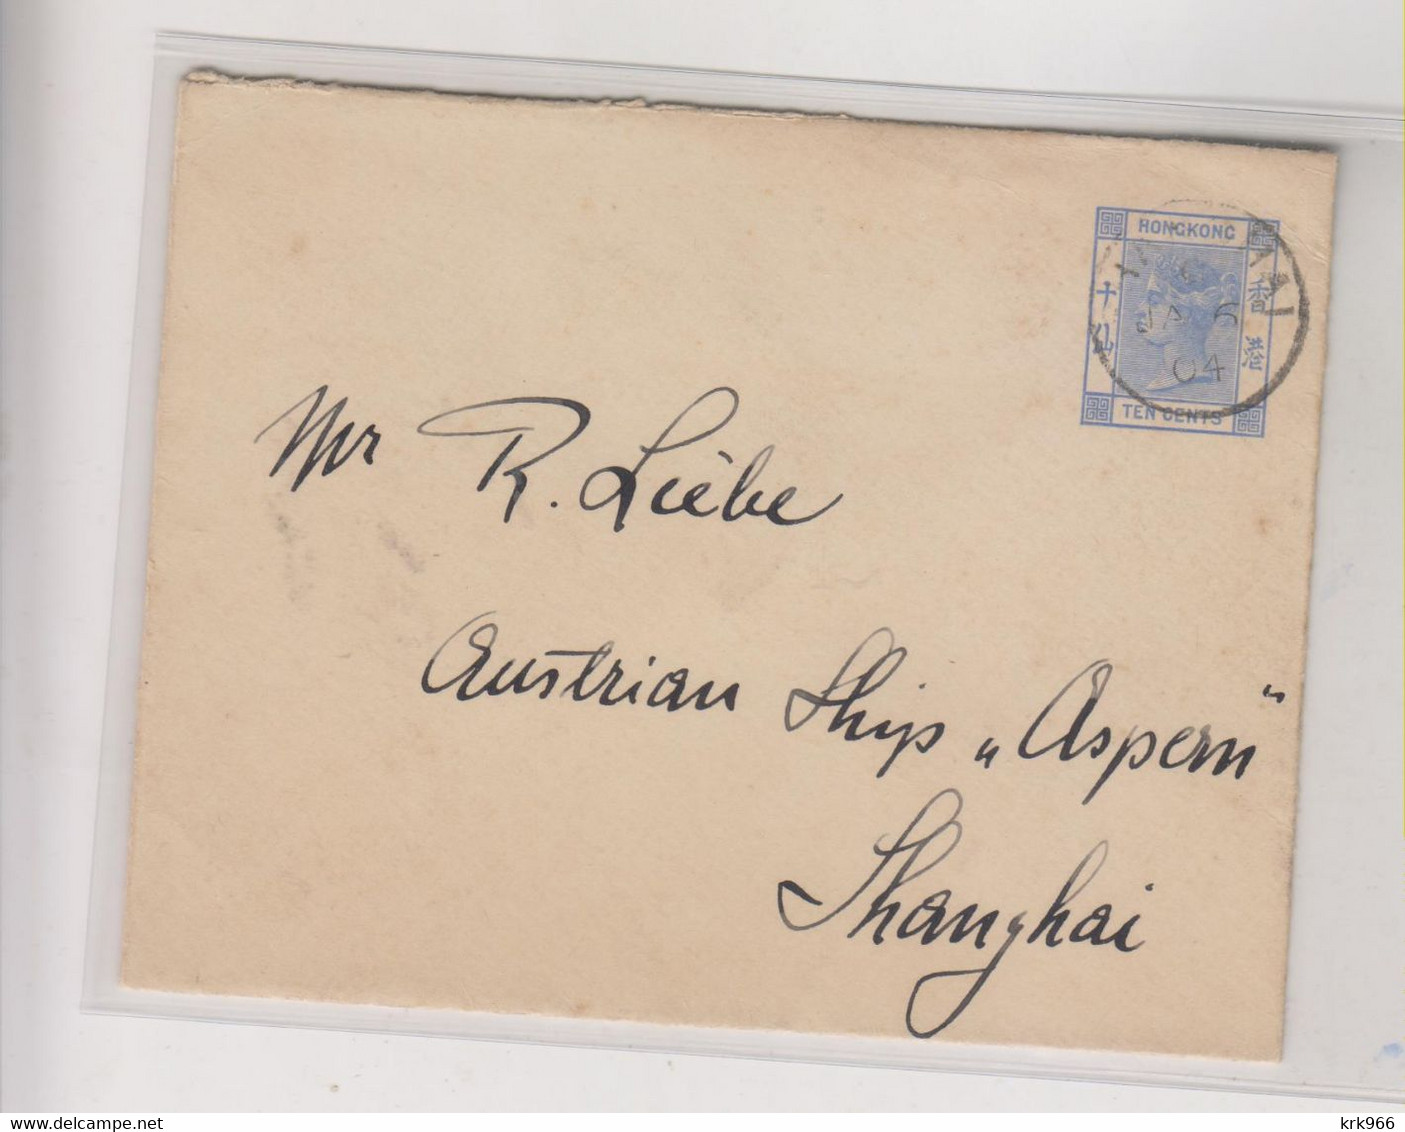 HONGKONG
十仙
香港
JA 5
04
TEN CENTS
Mr R. Liebe
Austrian Ship „Aspern“
Shanghai
www.delcampe.net
krk966